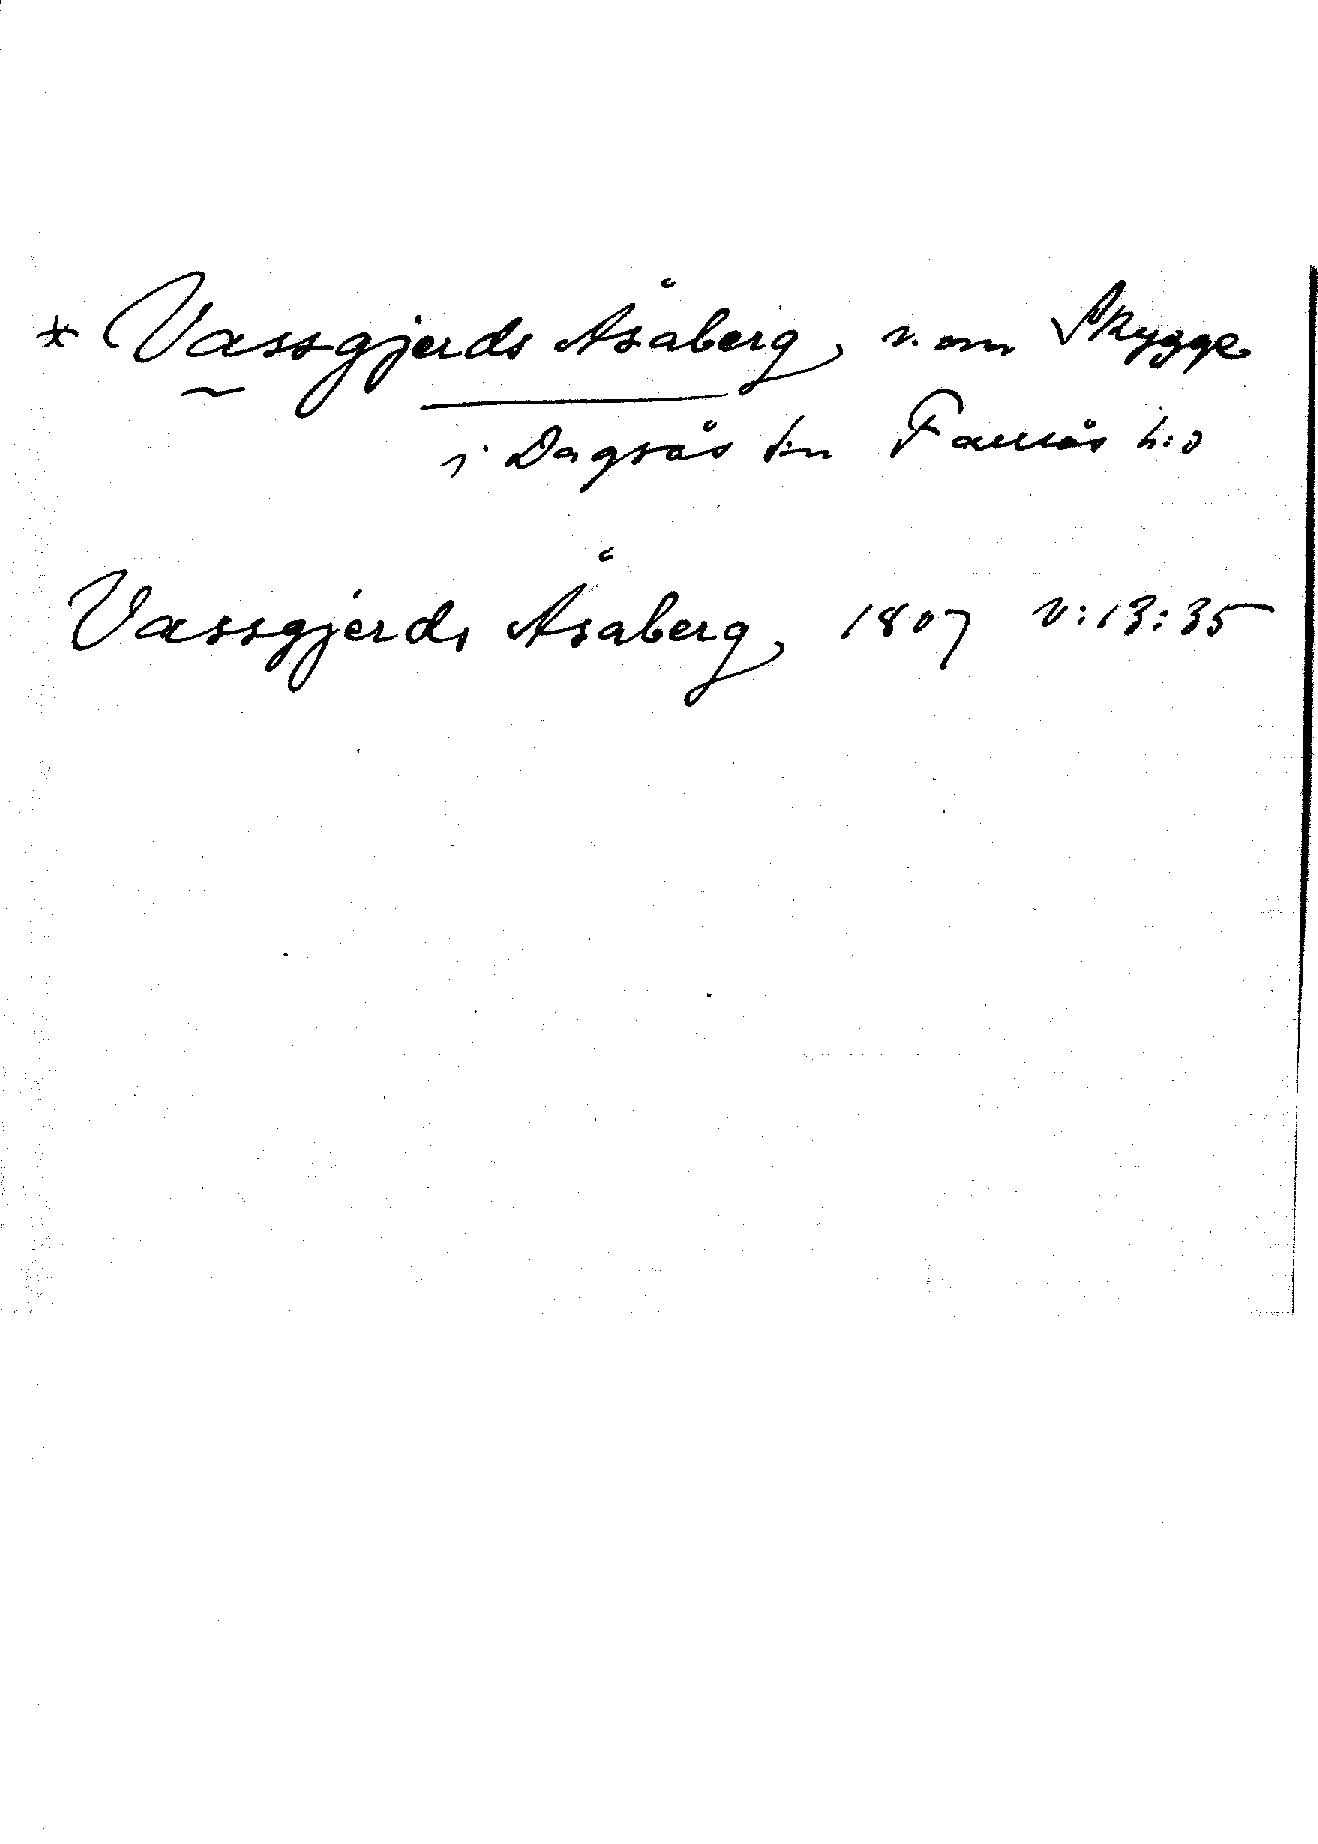 * Vassgjerds Åsaberg, v. om Skygge
i Dagsås sn Faurås h:d
Vassgjerds Åsaberg, 1807 V:13:35